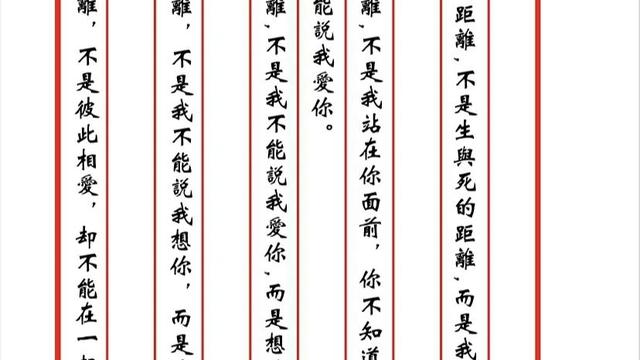 距離,不是生與死的距離,而是我
離,不是我站在你面前,你不知道
能說我愛你。
離,不是我不能說我愛你,而是想
離,不是我不能說我想你,而是
離,不是彼此相愛,却不能在一起